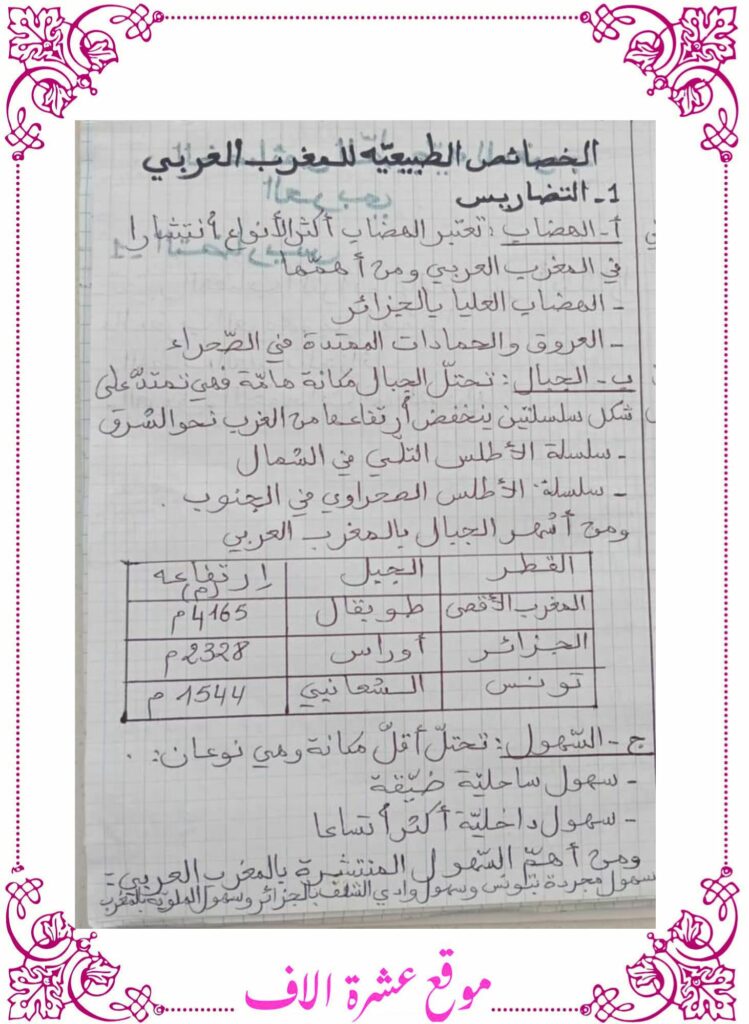 الخصائص الطبيعيّة للمغرب العربي
1 - التضاريس
أ - الهضاب : تعتبر الهضاب أكثر الأنواع أنتشارا
في المغرب العربي ومن أهمّها
- الهضاب العليا بالجزائر
- العروق والحمادات الممتدة في الصّحراء
ب - الجبال : تحتلّ الجبال مكانة هامّة فهي تمتدّ على
شكل سلسلتين ينخفض أرتفاعها من الغرب نحو الشرق
- سلسلة الأطلس التلّي في الشمال
- سلسلة الأطلس الصحراوي في الجنوب .
ومن أشهر الجبال بالمغرب العربي
القطر الجبل إرتفاعه (م)
المغرب الأقصى طوبقال 4165م
الجزائر أوراس 2328م
تونس الشعانبي 1544م
ج - السّهول : تحتلّ أقلّ مكانة وهي نوعان :
- سهول ساحليّة ضيّقة
- سهول داخليّة أكثر أتساعا
ومن أهمّ السّهول المنتشرة بالمغرب العربي :
سهول مجردة بتونس وسهول وادي الشلف بالجزائر وسهول الملويّة بالمغرب
موقع عشرة الاف